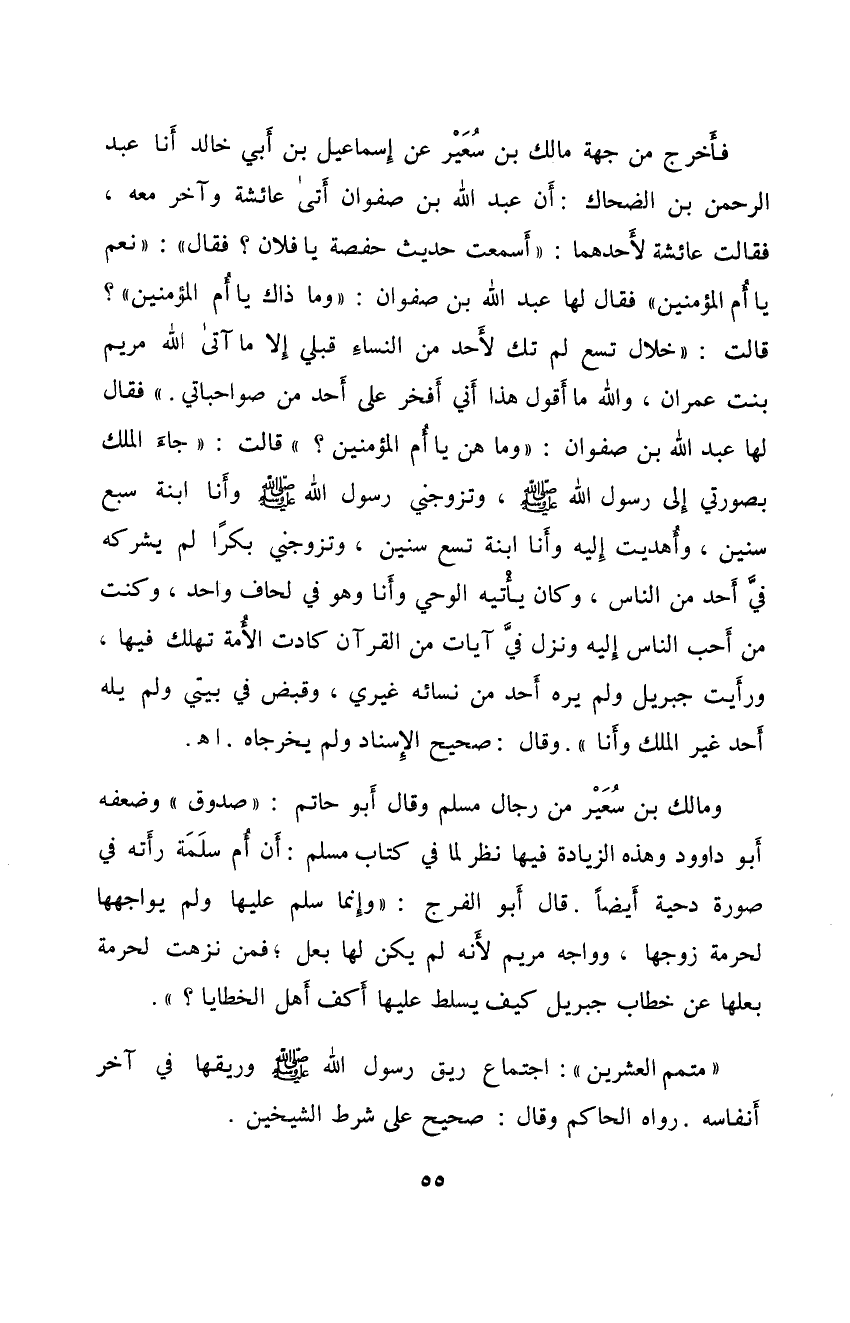 فأَخرج من جهة مالك بن سُعَيْر عن إسماعيل بن أَبي خالد أَنا عبد
الرحمن بن الضحاك : أَن عبد الله بن صفوان أَتىٰ عائشة وآخر معه ،
فقالت عائشة لأَحدهما : « أَسمعت حديث حفصة يا فلان ؟ فقال» : « نعم
يا أُم المؤمنين» فقال لها عبد الله بن صفوان : «وما ذاك يا أُم المؤمنين» ؟
قالت : « خلال تسع لم تك لأَحد من النساءِ قبلي إلا ما آتىٰ الله مريم
بنت عمران ، والله ما أَقول هذا أَني أَفخر على أَحد من صواحباتي . » فقال
لها عبد الله بن صفوان : «وما هن يا أُم المؤمنين ؟ » قالت : « جاءَ الملك
بصورتي إلى رسول الله ﷺ ، وتزوجني رسول الله ﷺ وأَنا ابنة سبع
سنين ، وأُهديت إليه وأَنا ابنة تسع سنين ، وتزوجني بكرًا لم يشركه
فيَّ أَحد من الناس ، وكان يأْتيه الوحي وأَنا وهو في لحاف واحد ، وكنت
من أَحب الناس إليه ونزل فيَّ آيات من القرآن كادت الأُمة تهلك فيها ،
ورأَيت جبريل ولم يره أَحد من نسائه غيري ، وقبض في بيتي ولم يله
أَحد غير الملك وأَنا » . وقال : صحيح الإسناد ولم يخرجاه . ا ه .
ومالك بن سُعَيْر من رجال مسلم وقال أَبو حاتم : « صدوق » وضعفه
أَبو داوود وهذه الزيادة فيها نظر لما في كتاب مسلم : أَن أُم سلَمَة رأَته في
صورة دحية أَيضاً . قال أَبو الفرج : « وإنما سلم عليها ولم يواجهها
لحرمة زوجها ، وواجه مريم لأَنه لم يكن لها بعل ؛ فمن نزهت لحرمة
بعلها عن خطاب جبريل كيف يسلط عليها أَكف أَهل الخطايا ؟ » .
« متمم العشرين » : اجتماع ريق رسول الله ﷺ وريقها في آخر
أَنفاسه . رواه الحاكم وقال : صحيح على شرط الشيخين .
٥٥